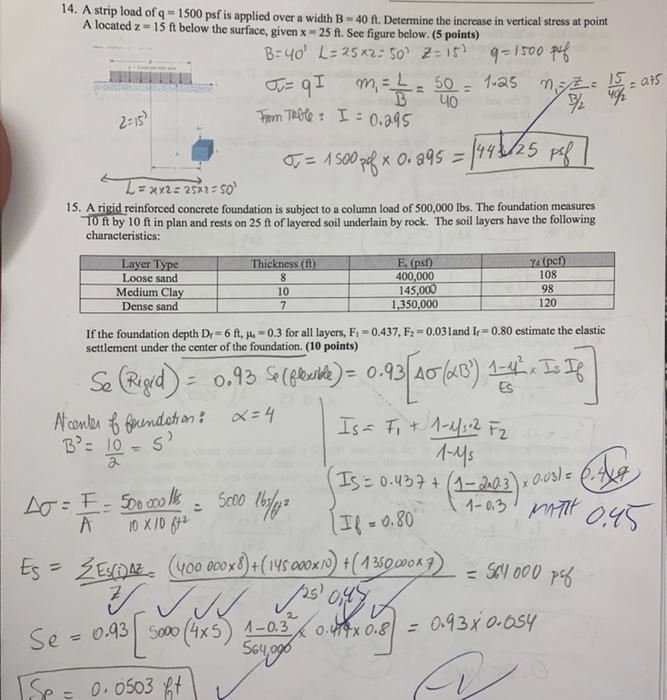 14. A strip load of q = 1500 psf is applied over a width B = 40 ft. Determine the increase in vertical stress at point
A located z = 15 ft below the surface, given x = 25 ft. See figure below. (5 points)
B=40' L=25x2=50' Z=15' q=1500 psf
σ = qI m₁ = L/B = 50/40 = 1.25 n₁ = Z/(B/2) = 15/(40/2) = 0.75
Z=15'
From Table: I = 0.295
σ = 1500 psf x 0.295 = 442.25 psf
L = x x 2 = 25x2 = 50'
15. A rigid reinforced concrete foundation is subject to a column load of 500,000 lbs. The foundation measures
10 ft by 10 ft in plan and rests on 25 ft of layered soil underlain by rock. The soil layers have the following
characteristics:
Layer Type Thickness (ft) Es (psf) γd (pcf)
Loose sand 8 400,000 108
Medium Clay 10 145,000 98
Dense sand 7 1,350,000 120
If the foundation depth Df = 6 ft, μs = 0.3 for all layers, F₁ = 0.437, F₂ = 0.031and If = 0.80 estimate the elastic
settlement under the center of the foundation. (10 points)
Se (Rigid) = 0.93 Se(flexible) = 0.93 [Δσ(αB') (1-μ²)/Es x Is If]
At center of foundation: α = 4
B' = 10/2 = 5'
Is = F₁ + (1-μs·2)/(1-μs) F₂
Δσ = F/A = 500 000 lbs/10 x 10 ft² = 5000 lbs/ft²
Is = 0.437 + ((1-2x0.3)/(1-0.3)) x 0.031 =
If = 0.80
MATH 0.45
Es = ΣEs(i)ΔZ/Z = ((400 000x8)+(145 000x10)+(1350000x7))/25' = 564 000 psf
0,45
Se = 0.93 [5000 (4x5) (1-0.3²)/564,000 x x 0.8] = 0.93 x 0.054
Se = 0.0503 ft